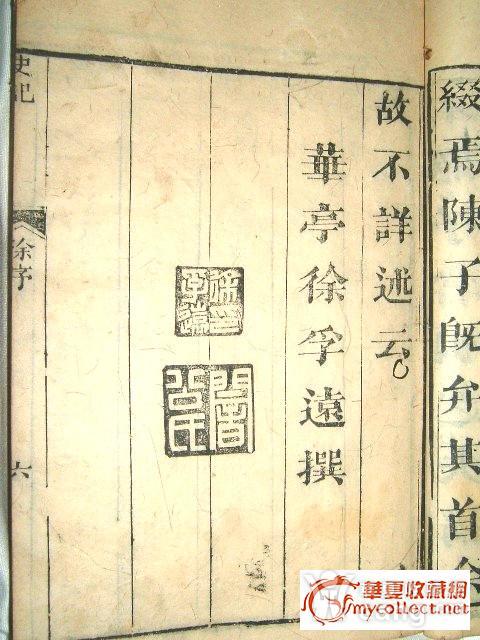 綴焉陳子既弁其首余
故不詳述云
華亭徐孚遠撰
徐孚遠
史記
徐序
六
華夏收藏網
mycollect.net